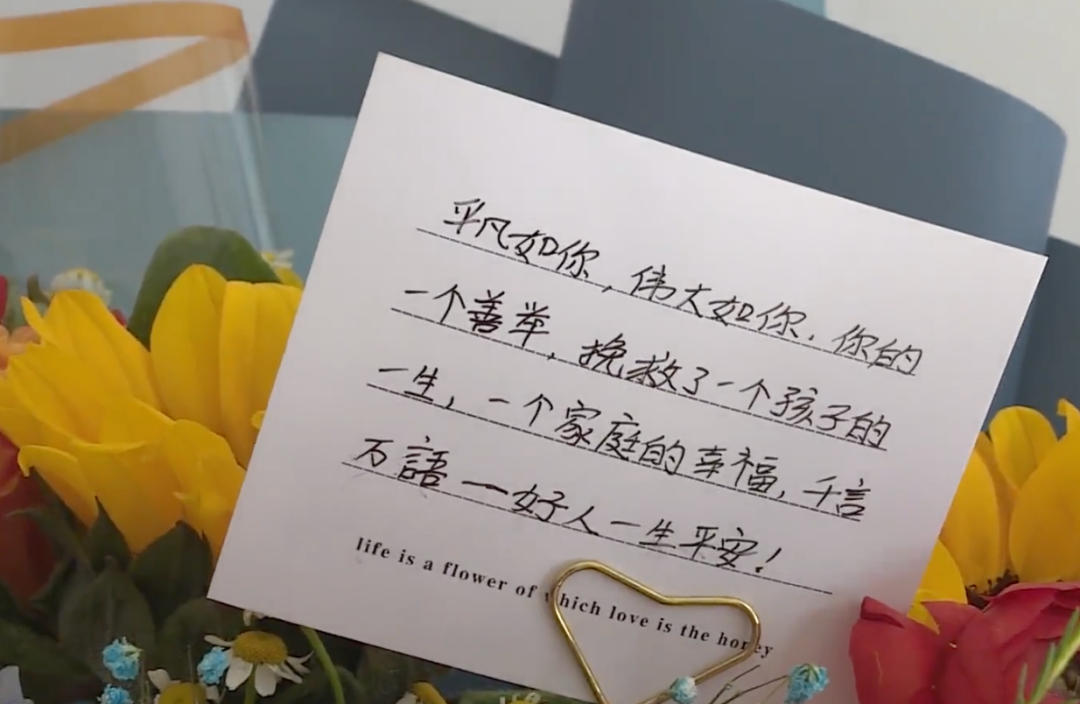 平凡如你，伟大如你，你的
一个善举，挽救了一个孩子的
一生，一个家庭的幸福，千言
万語一好人一生平安！
life is a flower of which love is the honey